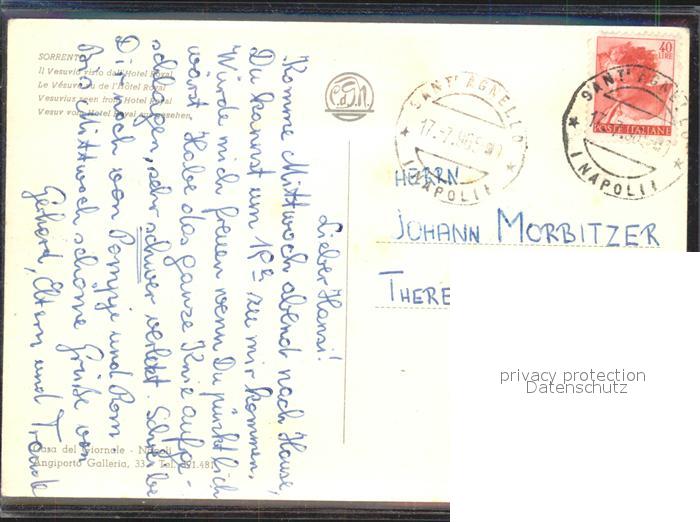 SORRENTO
Il Vesuvio visto dall'Hotel Royal
Le Vésuve vu de l'Hôtel Royal
Vesuvius seen from Hotel Royal
Vesuv vom Hotel Royal aus gesehen
Lieber Hansi!
Komme Mittwoch abend nach Hause,
Du kannst um 18h zu mir kommen.
Würde mich freuen wenn Du pünktlich
wärst. Habe das ganze Knie aufge-
schlagen, sehr schwer verletzt. Schreibe
Dir noch von Pompeji und Rom
Bis Mittwoch schöne Grüße von
Gerhard, Eltern und Traude
Casa del Giornale - Napoli
Angiporto Galleria, 33 - Tel. 391.481
SANT' AGNELLO
(NAPOLI)
40
LIRE
POSTE ITALIANE
SANT' AGNELLO
(NAPOLI)
HERRN
JOHANN MORBITZER
THERE
privacy protection
Datenschutz